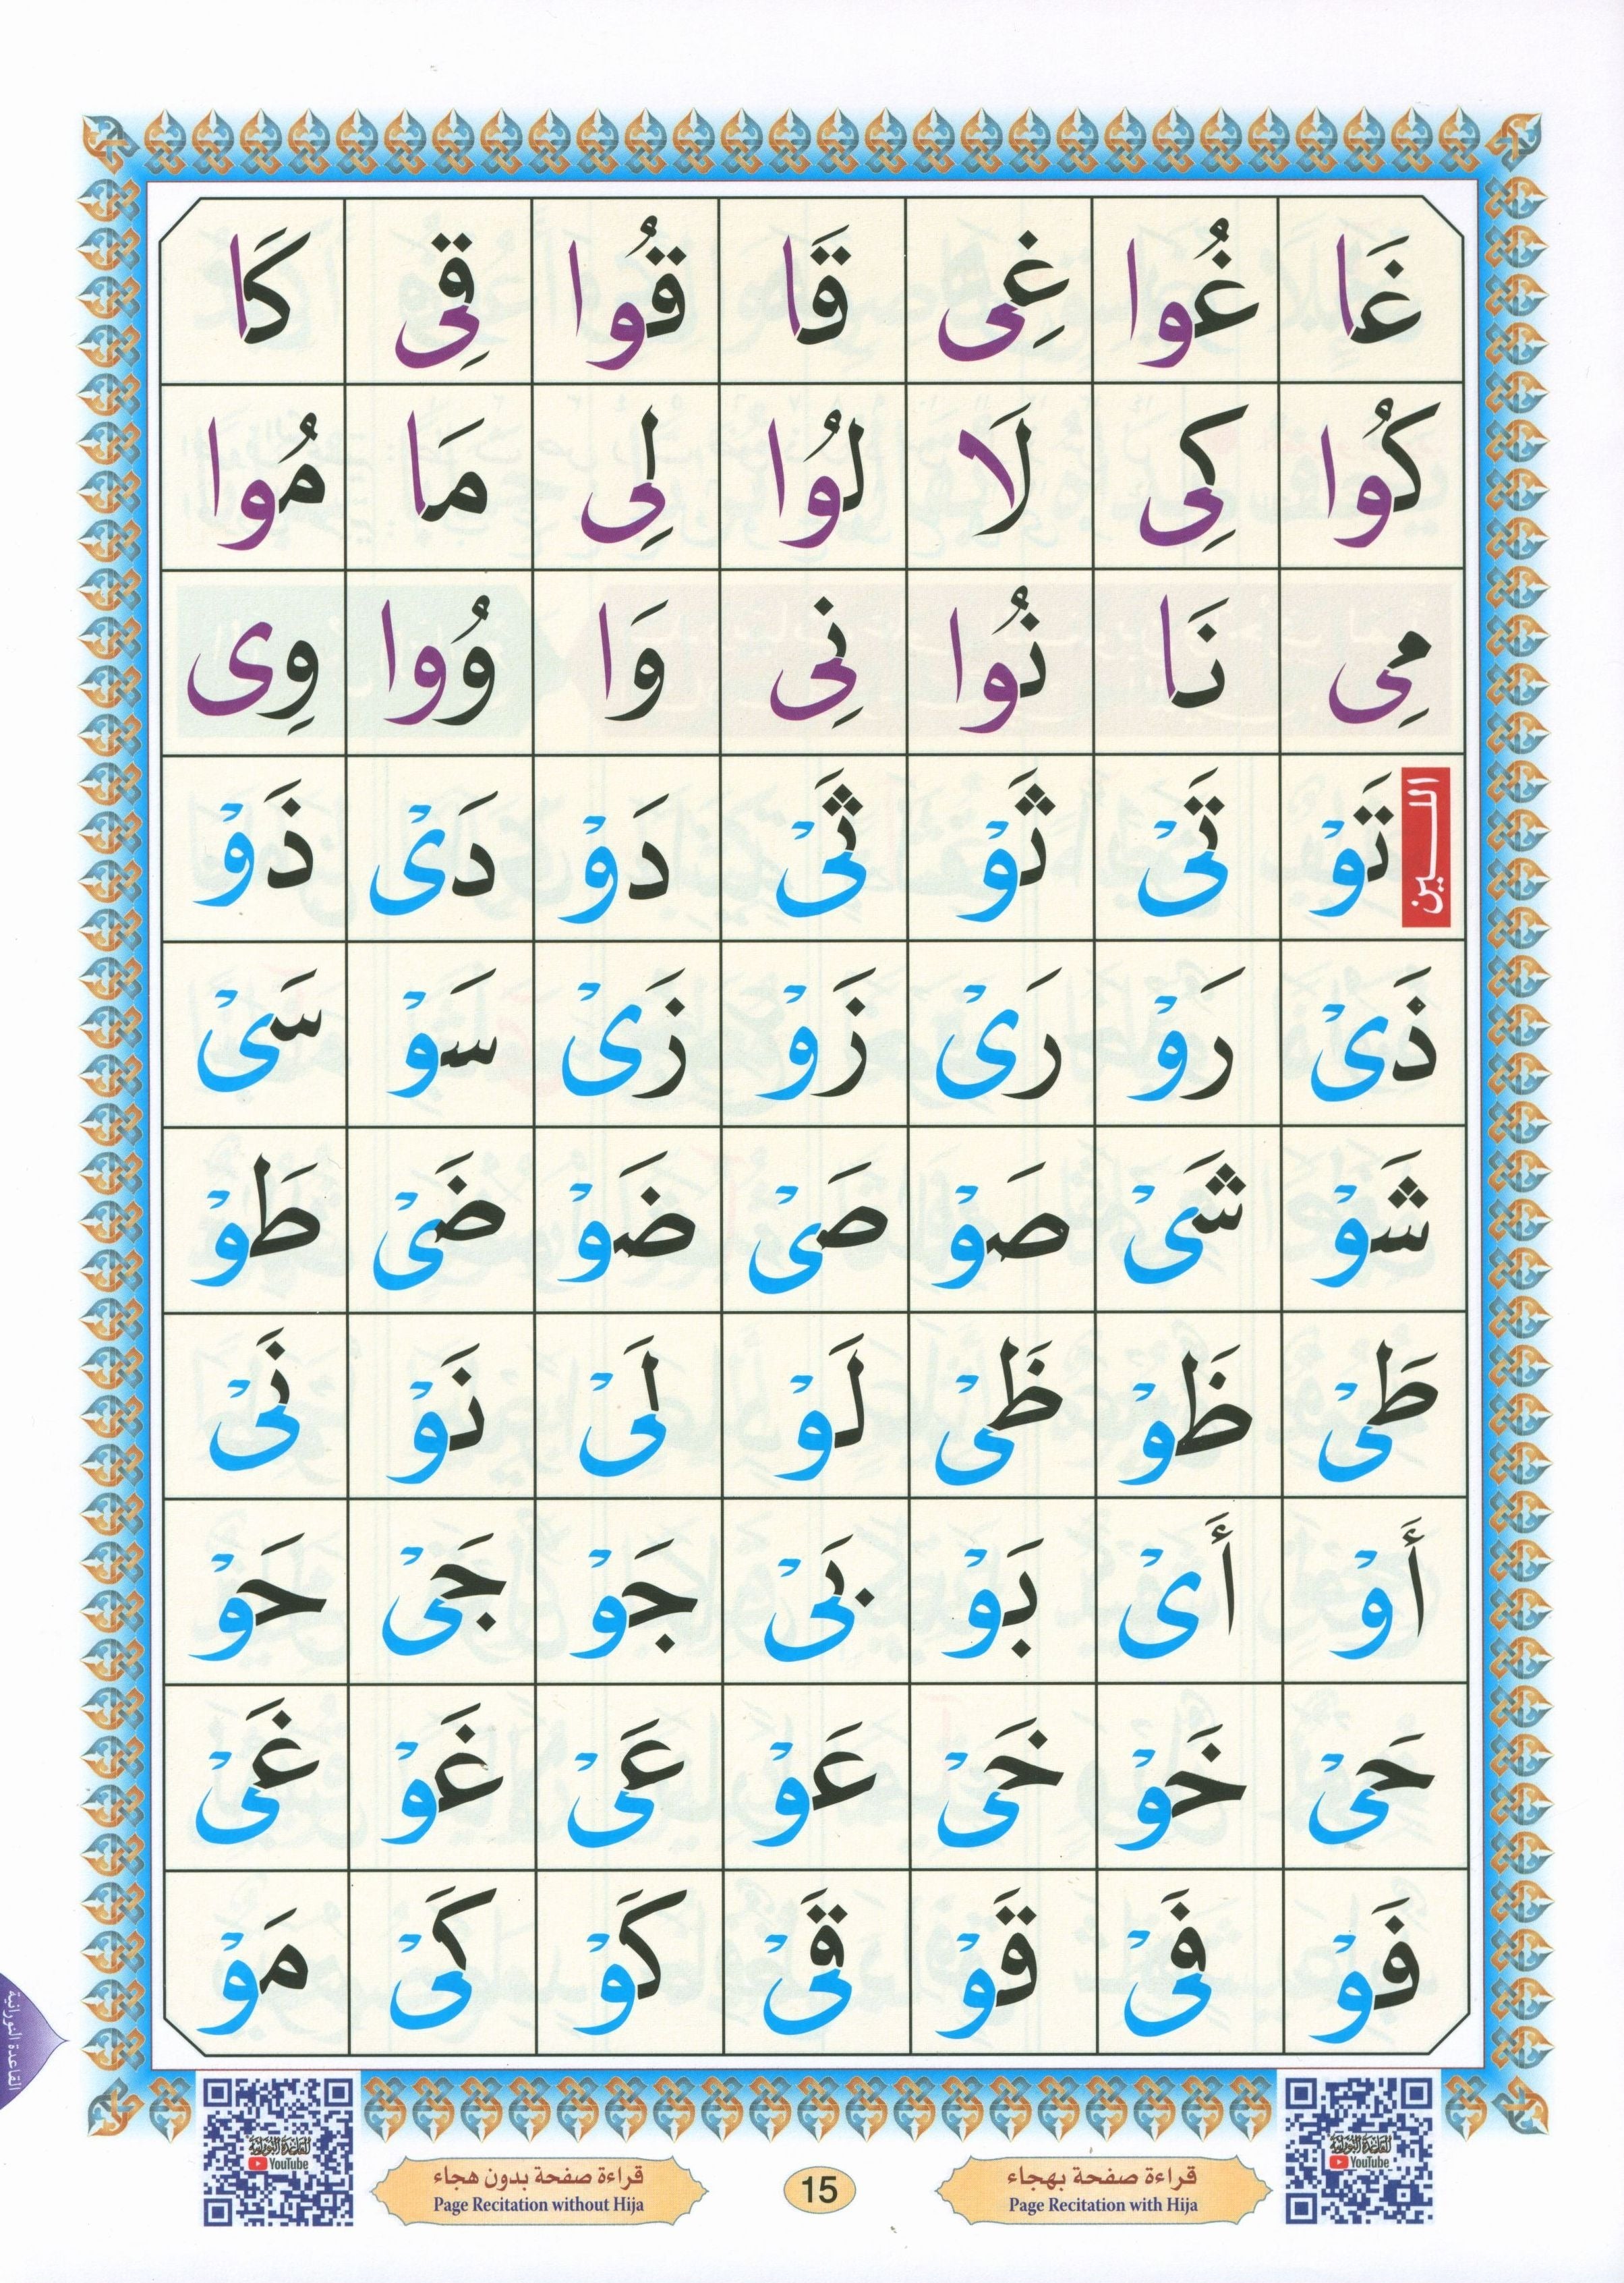 غَا غُوا غِى قَا قُوا قِى كَا
كُوا كِى لَا لُوا لِى مَا مُوا
مِى نَا نُوا نِى وَا وُوا وِى
اللــين
تَوْ تَىْ ثَوْ ثَىْ دَوْ دَىْ ذَوْ
ذَىْ رَوْ رَىْ زَوْ زَىْ سَوْ سَىْ
شَوْ شَىْ صَوْ صَىْ ضَوْ ضَىْ طَوْ
طَىْ ظَوْ ظَىْ لَوْ لَىْ نَوْ نَىْ
أَوْ أَىْ بَوْ بَىْ جَوْ جَىْ حَوْ
حَىْ خَوْ خَىْ عَوْ عَىْ غَوْ غَىْ
فَوْ فَىْ قَوْ قَىْ كَوْ كَىْ مَوْ
القاعدة النورانية
القاعدة النورانية
YouTube
قراءة صفحة بهجاء
Page Recitation with Hija
15
قراءة صفحة بدون هجاء
Page Recitation without Hija
القاعدة النورانية
YouTube